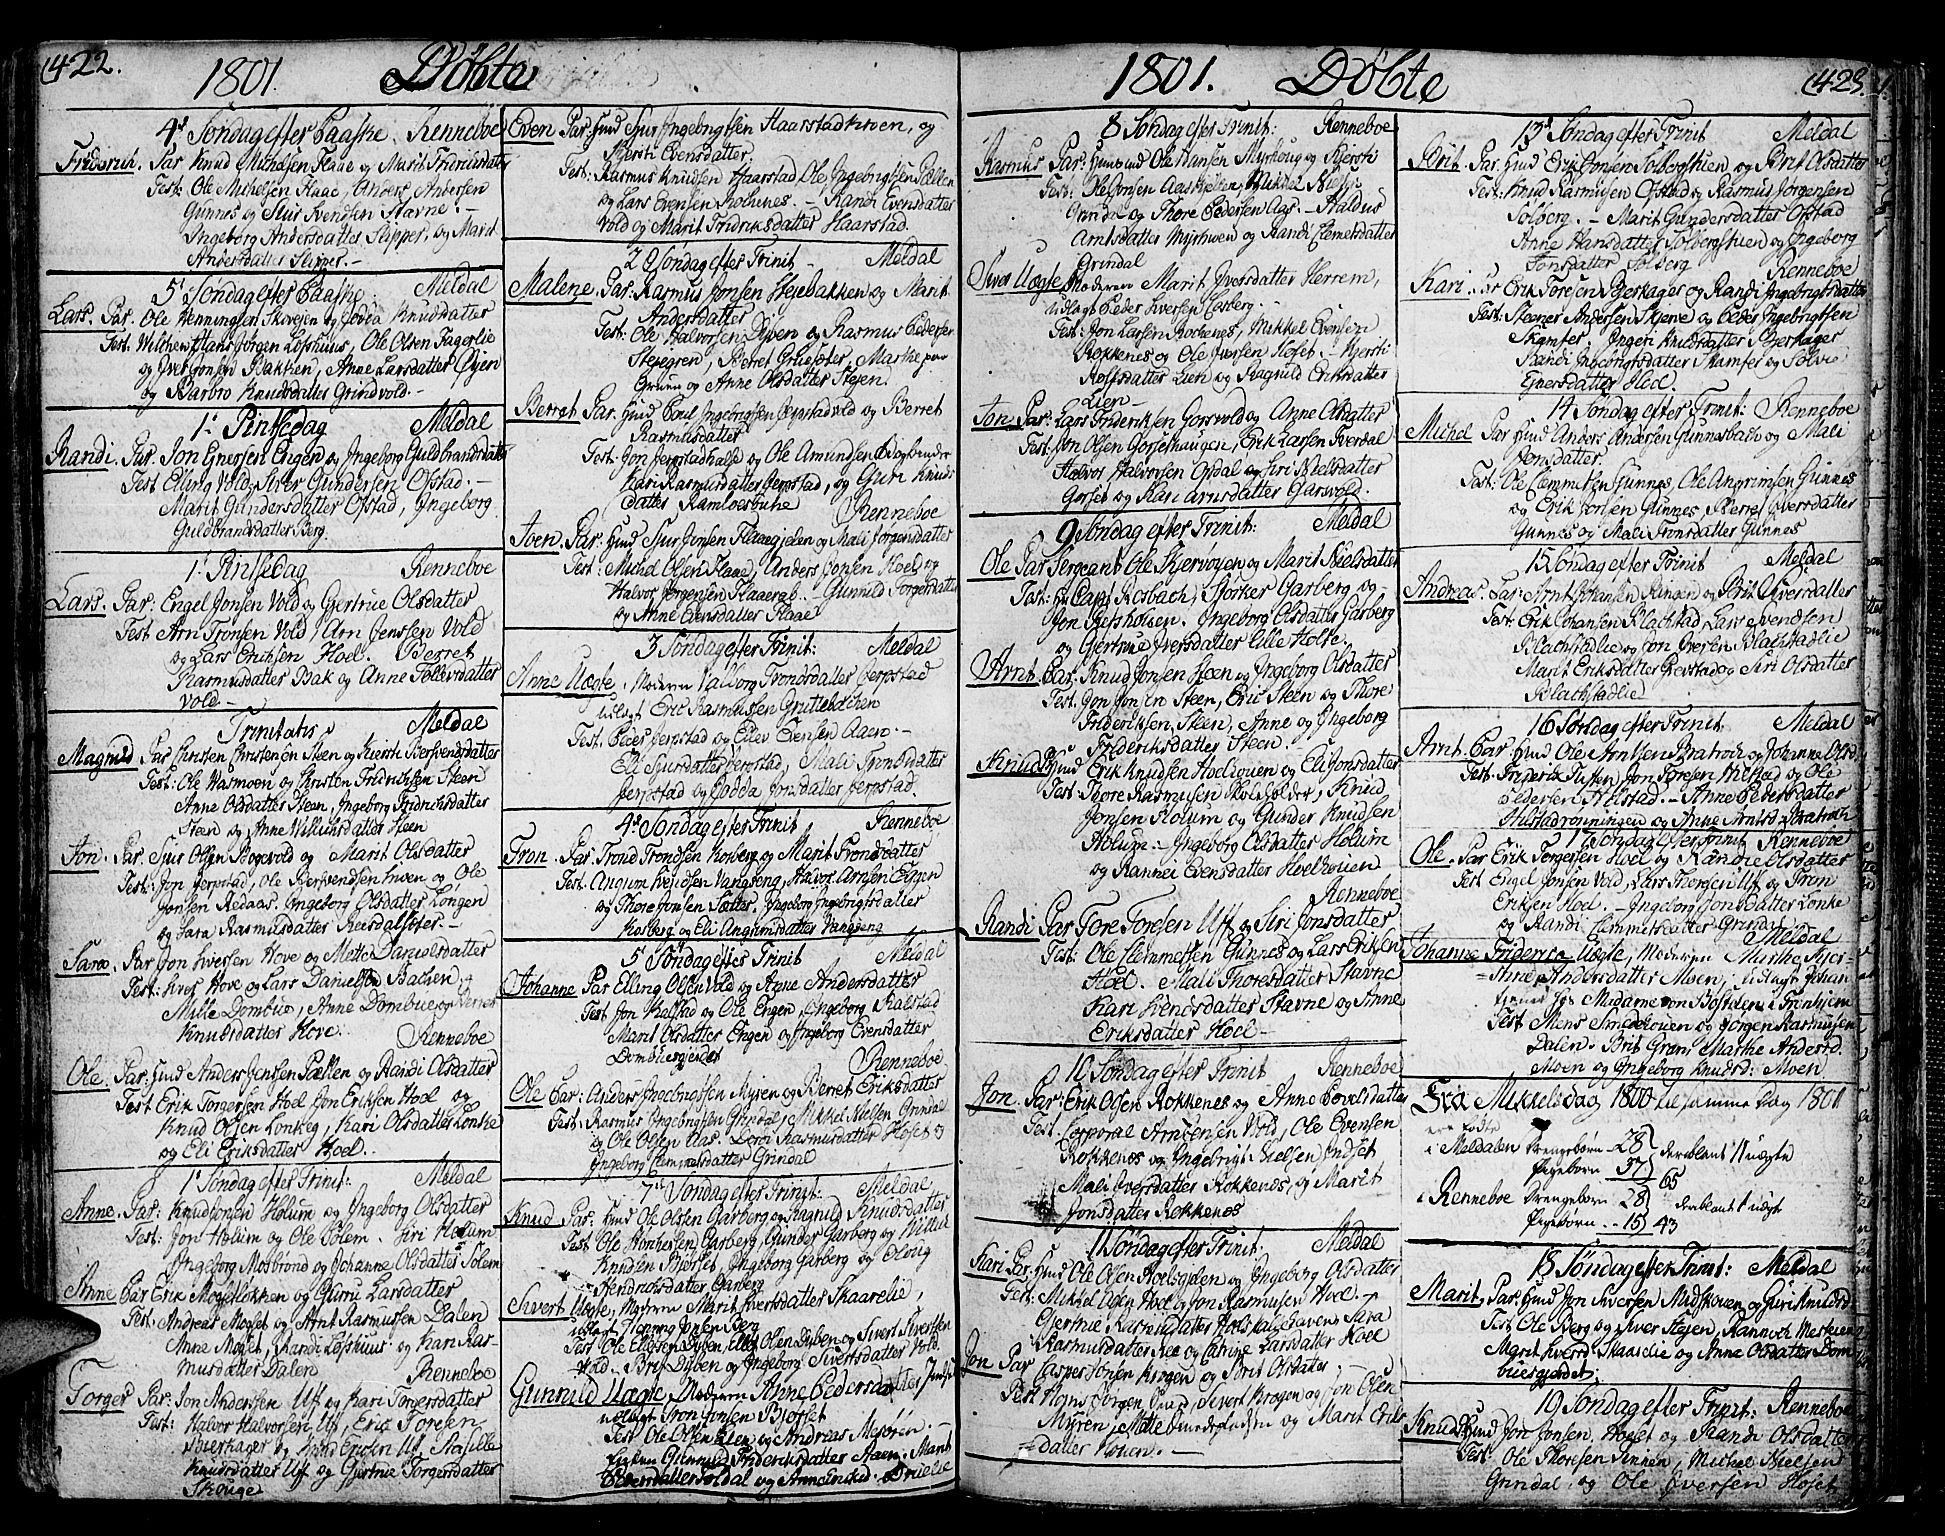 422.
1801. Döbte
4d Söndag efter Paaske. Renneboe
Friderich. Par Knud Michelsen Flaae og Marit Fridrichsdatter
Test: Ole Michelsen Flaae, Anders Andersen
Gunnes og Siur Svendsen Stavne. -
Ingeborg Andersdatter Slipper, og Marit
Andersdatter Slipper. -
5 Söndag efter Paaske Meldal
Lars. Par. Ole Henningsen Skivesen og Jödda Knudsdatter
Test: Hans Jörgen Löfshuus, Ole Olsen Fagerlie
og Iver Jonsen Bakken, Anne Larsdatter
og Barbro Knudsdatter Grindvold. -
1: Pintsedag Meldal
Randi. Par. Jon Enersen Engen og Ingeborg Guldbrandsdatter
Test Elling Vold, Siver Gundersen Ofstad. -
Marit Gundersdatter Ofstad, Ingeborg
Guldbrandsdatter Berg.
1: Pintsedag Renneboe
Lars. Par: Engel Jonsen Vold og Gjertrue Olsdatter
Test Arn Tronsen Vold, Arn Jenssen Vold
og Lars Erichsen Hoel. Berret
Rasmusdatter Bak og Anne Tollevsdatter
Vold -
Trinitatis Meldal
Magnild Par Christen Christensön Steen og Kiersti Bersvendsdatter
Test: Ole Varmoen og Christen Fridrichsen Steen
Anne Olsdatter Steen, Ingeborg Fridrichsdatter
Steen og Anne Steen
Jon. Par Sjur Olsen Bogevold og Marit Olsdatter
Test: Jon Jerpstad, Ole Bersvendsen og Ole
Jonsen Redaas. Ingeborg Olsdatter Longen
og Sara Rasmusdatter -
Sara. Par Jon Iversen Hove og Mette Danielsdatter
Test: Iver Hove og Lars Danielsen Bachen,
Mille Dombue, Anne Dombue og Berret
Knudsdatter Hove.
Renneboe
Ole Par: Hmd Anders Jensen Pælken og Randi Olsdatter
Test Erik Torgersen Hoel Jon Eriksen Hoel og
Knud Olsen Lonkeg, Kari Olsdatter Lonke
og Eli Eriksdatter Hoel.
1 Söndag efter Trinit: Meldal
Anne. Par: Knud Jonsen Holum og Ingeborg Olsdatter
Test: Jon Holum og Ole Solem. Siri Holum
Ingeborg Mosbrond og Johanne Olsdatter Solem
Anne Par Erik Mogetlökken og Guru Larsdatter
Test: Andreas Moget og Arnt Rasmussen Dalen
Anne Moget, Randi Löfshuus og Kari Ras-
musdatter Dalen Renneboe
Torger Par: Jon Andersen Uff og Kari Torgersdatter
Test: Halvor Halvorsen Uff, Eric Toresen
Bierkager og Eriksen Uff,
Knudsdatter Uff og Gjertrue Torgersdatter
Skouge
Even Par: Hmd Sjur Ingebrigtsen Haarstadhoven, og
Kjersti Evensdatter.
Test: Rasmus Knudsen Haarstad Ole Ingebrigtsen Pælken
og Lars Evensen Rokenes. - Randi Evensdatter
Vold og Marit Fridriksdatter Haarstad.
2 Söndag efter Trinit - Meldal
Malene. Par: Rasmus Jonsen Stejebakken og Marit
Andersdatter
Test: Ole Halvorsen Dyben og Rasmus Pedersen
Stejegren, Berret, Marthe
Gruen og Anne Olsdatter Stejen.
Berret Par. Hmd Poul Ingebrigtsen Jerpstadvold og Berret
Rasmusdatter
Test: Jon Jerpstadhalse og Ole Amundsen Bogbinder
Kari Rasmusdatter Jerpstad, og Guri Knuds
datter Ramloesbuhe
Renneboe
Joen. Par: Hmd Sjur Jonsen Flaaegjelen og Mali Jörgensdatter
Test: Michel Olsen Flaae, Anders Jonsen Hoel og
Halvor Jörgensen Flaaerae. Gunnild Torgersdatter
og Anne Evensdatter Flaae
3 Söndag efter Trinit: Meldal
Anne Uægte, Moderen Valborg Trondsdatter Jerpstad
udlagt Eric Rasmussen
Test. Peder Jerpstad og Ellev Evensen Aaen. -
Eli Sjursdatter Jerpstad, Mali Trondsdatter
Jerpstad og Jödda Jonsdatter Jerpstad.
4d Söndag efter Trinit Renneboe
Tron. Par: Trond Trondsen Kosberg og Marit Trondsdatter
Test. Angrim Svendsen Vangseng, Halvor Arntsen
og Thore Jonsen Sætter. Ingeborg Ingebrigtsdatter
Kosberg og Eli Angrimsdatter Vangseng
5 Söndag efter Trinit Meldal
Johanne Par Elling Olsen Vold og Anne Andersdatter
Test Jon Kalstad og Ole Engen, Ingeborg Kalstad
Marit Olsdatter Engen og Ingeborg Evensdatter
Dombuesgjerdet
Renneboe
Ole Par: Anders Ingebrigtsen Myren og Berret Eriksdatter
Test: Rasmus Ingebrigtsen Grindal, Mikkel Nielsen Grindal
og Ole Olsen Aas. Rasmusdatter Hofset og
Ingeborg Clemmetsdatter Grindal
7de Söndag efter Trinit: Meldal
Knud Par: Hmd Ole Olsen Garberg og Ragnild Knudsdatter
Test Ole Garberg, Gunder Garberg og
Knudsen Bjerset, Ingeborg Garberg og
Hendrichsdatter Garberg
Sivert Uægte, Moderen Marit Iversdatter Skaarelie,
udlagt Henning Jonsen Berg
Test Ole Ellefsen Dyben, Olsen Dyben og Sivert Sivertsen
Vold. Brit Dyben og Ingeborg Sivertsdatter Vold.
Gunnild Uægte, Moderen Anne Pedersdatter
udlagt Tron Jonsen Bjorset
Test Ole Olsen Elen og Andreas Mesören. -
Gunnild Frideriksdatter Aaen. Marit
1801. Döbte
423.
8 Söndag efter Trinit: Renneboe
Rasmus Par: Husmd Ole Hansen Myrhoug og Kjersti
Test: Ole Jonsen Aaskjelden, Mikkel Nielsen
Grindal og Thore Pedersen Aas. -
Arntsdatter Myrhoven og Randi Clemetsdatter
Grindal
Siver Uægte, Moderen Marit Iversdatter Herrem,
udlagt Peder Iversen Casberg.
Test: Jon Larsen Rockenes, Mikkel Evensen
Rokkenes og Ole Iversen Hofset. - Kjersti
Rolfsdatter Lien og Ragnild Eriksdatter
Lien -
Jon Par: Lars Frideriksen Gorsvold og Anne Olsdatter
Test: Jon Olsen Gorsethaugen, Erik Larsen Sverdal
Halvor Halvorsen Ofsdal og Siri Nielsdatter
Gorset og Kari Arntsdatter Garsvold.
9 Söndag efter Trinit: Meldal
Ole Par Sergeant Ole Skjervöyen og Marit Nielsdatter
Test: Hr Capt Rosbach, Störker Garberg og
Jon Jyesholsen. Ingeborg Olsdatter Garberg
og Gjertrue Iversdatter Lille Holte.
Arnt Par. Knud Jonsen Steen og Ingeborg Olsdatter
Test. Jon Jonsen Steen, Eric Steen og Thore
Frideriksen Steen, Anne og Ingeborg
Frideriksdatter Steen. -
Knud Hmd Erik Knudsen Hoelsouen og Eli Jonsdatter
Test: Thore Rasmusen Skoleholder, Knud
Jonsen Holum og Gunder Knudsen
Holum - Ingeborg Olsdatter Holum
og Rannei Evensdatter Hoelhouen
Renneboe
Randi Par Tore Toresen Uff og Siri Jonsdatter
Test: Ole Clemmetsen Gunnes og Lars Eriksen
Hoel. Mali Thoresdatter Stavne
Kari Svendsdatter Stavne og Anne
Eriksdatter Hoel -
10 Söndag efter Trinit Renneboe
Jon. Par: Erik Olsen Rokkenes og Anne Povelsdatter
Test: Corporal Vold, Ole Evensen
Rokkenes og Ingebrigt Nielsen Indset
Mali Iversdatter Rokkenes, og Marit
Jonsdatter Rokkenes
11 Söndag efter Trinit: Meldal
Kari Par: Hmd Ole Olsen Hoelsgjelen og Ingeborg Olsdatter
Test: Mikkel Olsen Hoel og Jon Rasmusen Hoel -
Gjertrue Sara
Rasmusdatter Ree og Catrine Larsdatter Hoel
Jon Par Casper Jonsen Krogen og Brit Olsdatter
Test Hans Jörgen, Sivert Krogen og Jon Olsen
Myren, og Marit Eriks-
datter Moen. -
13d Söndag efter Trinit Meldal
Brit. Par. Hmd Erik Jonsen Solbergshien og Brit Olsdatter
Test: Knud Rasmusen Ofstad og Rasmus Jörgensen
Solberg. - Marit Gundersdatter Ofstad
Anne Hansdatter Solbergshien og Ingeborg
Jonsdatter Solberg Renneboe
Kari. Par Erik Toresen Bjerkager og Randi Ingebrigtsdatter
Test: Steener Andersen Skjeve og Peder Ingebrigtsen
Skamfer, Ingeri Knudsdatter Bjerkager
Randi Ingebrigtsdatter Skamfer og Solvie
Enersdatter Hoel.
14 Söndag efter Trinit: Renneboe
Michel Par Hmd Anders Andersen Gunnesbak og Mali
Jonsdatter.
Test: Ole Clemmetsen Gunnes, Ole Angrimsen Gunnes
og Erik Jonsen Gunnes, Berret Iversdatter
Gunnes og Mali Tronsdatter Gunnes
15 Söndag efter Trinit Meldal
Andreas. Par: Arnt Johansen Ringen og Brit Iversdatter
Test: Erik Johansen Blachstad, Lars Svendsen
Blachstadlie og Jon Iversen Blachstadlie
Marit Eriksdatter Grefstad og Siri Olsdatter
Blachstadlie
16 Söndag efter Trinit Meldal
Arnt. Par: Hmd Ole Arntsen Bratroch og Johanne Olsd.
Test: Friderik, Jon Toresen og Ole
Pedersen Kelstad. - Anne Pedersdatter
og Anne Arntsd. Bratroch
17 Söndag efter Trinit Renneboe
Ole. Par Erik Torgersen Hoel og Randie Olsdatter
Test Engel Jonsen Vold, Lars Thoresen Uff og Tron
Eriksen Hoel. - Ingeborg Jonsdatter Lonke
og Randi Clemmetsdatter Grindal
Meldal
Johanne Friderica Uægte, Moderen Marthe Kjer-
Anne Andersdatter Moen, udlagt Johan
tjener hos Madame von Bosteden i Tronhjem
Test Mons Smedhouen og Jörgen Rasmusen
Dalen. Brit Gran, Marthe Andersd.
Moen og Ingeborg Knudsd: Moen
Fra Mikkelsdag 1800 til samme Dag 1801
ere födte
i Meldalen Drengebörn 28 deriblant 11 uægte
Pigebörn 37 65
i Renneboe Drengebörn 28 deriblant 1 uægt
Pigebörn .. 15 43
18 Söndag efter Trinit: Meldal
Marit, Par: Hmd Jon Sivertsen Midskouen og Guri Knudsd
Test Ole Berg og Siver Stejen,
Marit Iversd Skaarelie og Anne Olsdatter Dom
buesgjerdet.
19 Söndag efter Trinit: Renneboe
Knud Hmd Jon Jonsen Hofset og Randi Olsdatter
Test: Ole Thoresen Finnen, Michel Nielsen
Grindal, og Ole Iversen Hofset